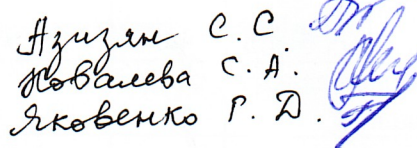 Азизян С. С.
Ковалева С. А.
Яковенко Г. Д.